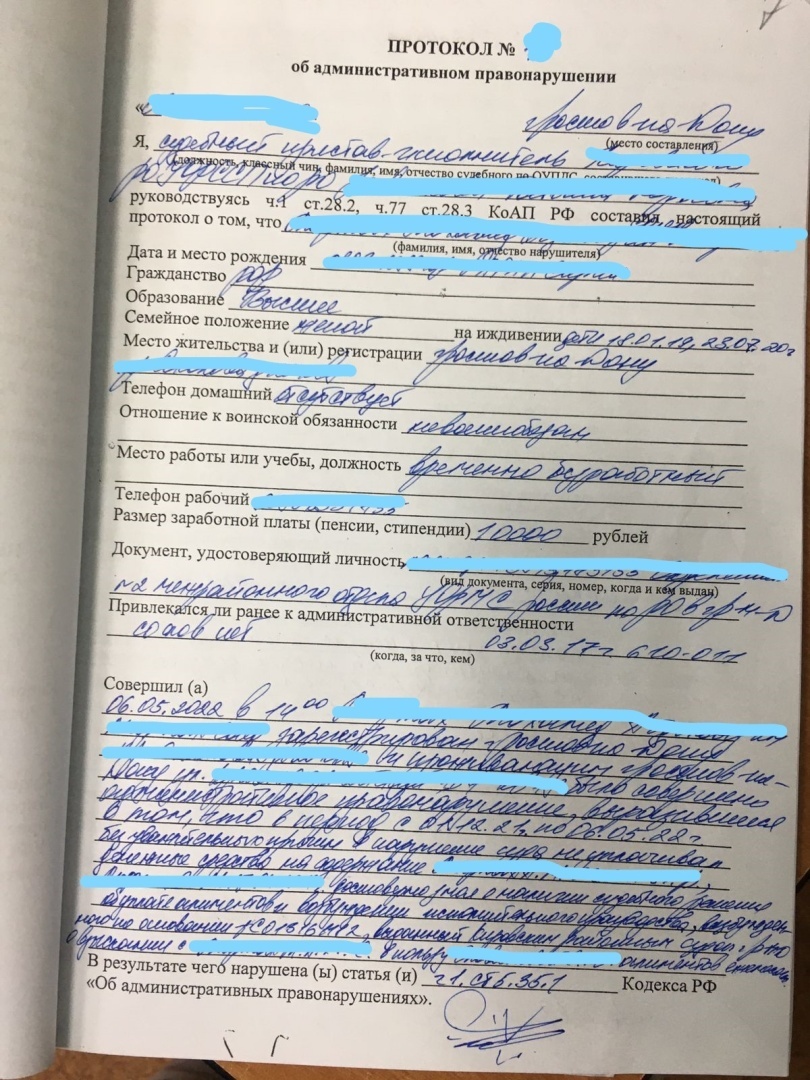 ПРОТОКОЛ №
об административном правонарушении
г. Ростов-на-Дону
(место составления)
Я, судебный пристав-исполнитель
(должность, классный чин, фамилия, имя, отчество судебного по ОУПДС,
руководствуясь ч.1 ст.28.2, ч.77 ст.28.3 КоАП РФ составил настоящий
протокол о том, что
(фамилия, имя, отчество нарушителя)
Дата и место рождения
Гражданство РФ
Образование Высшее
Семейное положение женат на иждивении дети 18.01.19, 23.07.20г
Место жительства и (или) регистрации г. Ростов на Дону
Телефон домашний отсутствует
Отношение к воинской обязанности
Место работы или учебы, должность временно безработный
Телефон рабочий
Размер заработной платы (пенсии, стипендии) 10000 рублей
Документ, удостоверяющий личность
(вид документа, серия, номер, когда и кем выдан)
межрайонного отдела УФМС России по РО в г. Р-н-Д
Привлекался ли ранее к административной ответственности
со слов нет 03.03.17г. 610-011
(когда, за что, кем)
Совершил (а)
06.05.2022 в 14 00
зарегистрирован г. Ростов на Дону
и проживающий г. Ростов-на-
Дону ул. было совершено
административное правонарушение, выразившееся
в том, что в период с по 06.05.22г.
без уважительных причин в нарушение суда не уплачивал
денежные средства на содержание
достоверно зная о наличии судебного решения
об уплате алиментов и возбуждении исполнительного производства,
на основании выданный Кировским районным судом г.
о взыскании с в пользу алиментов
В результате чего нарушена (ы) статья (и) ч 1. ст 5.35.1 Кодекса РФ
«Об административных правонарушениях».